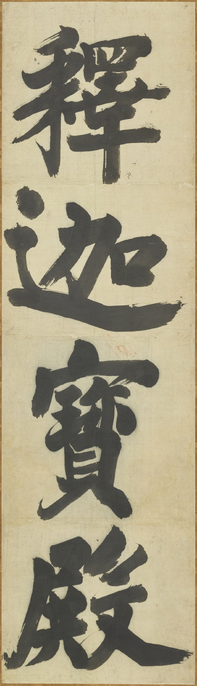 釋迦寶殿